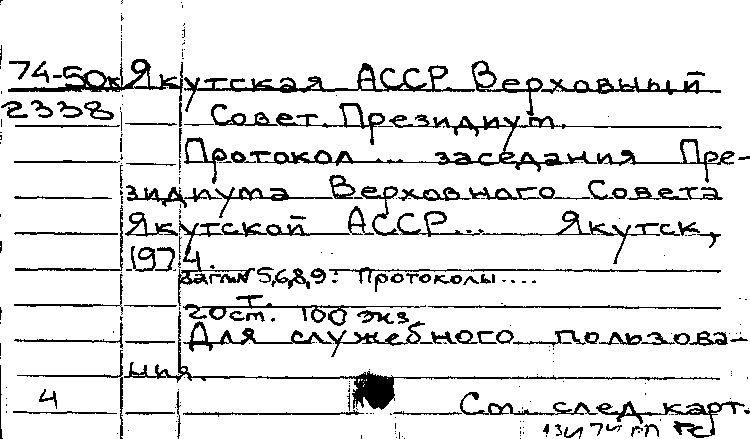 74-50к Якутская АССР. Верховный
2338 Совет. Президиум.
Протокол... заседания Пре-
зидиума Верховного Совета
Якутской АССР... Якутск,
1974.
Загл. №5,6,8,9: Протоколы....
Т.
20 см. 100 экз.
Для служебного пользова-
ния.
4 См. след. карт.